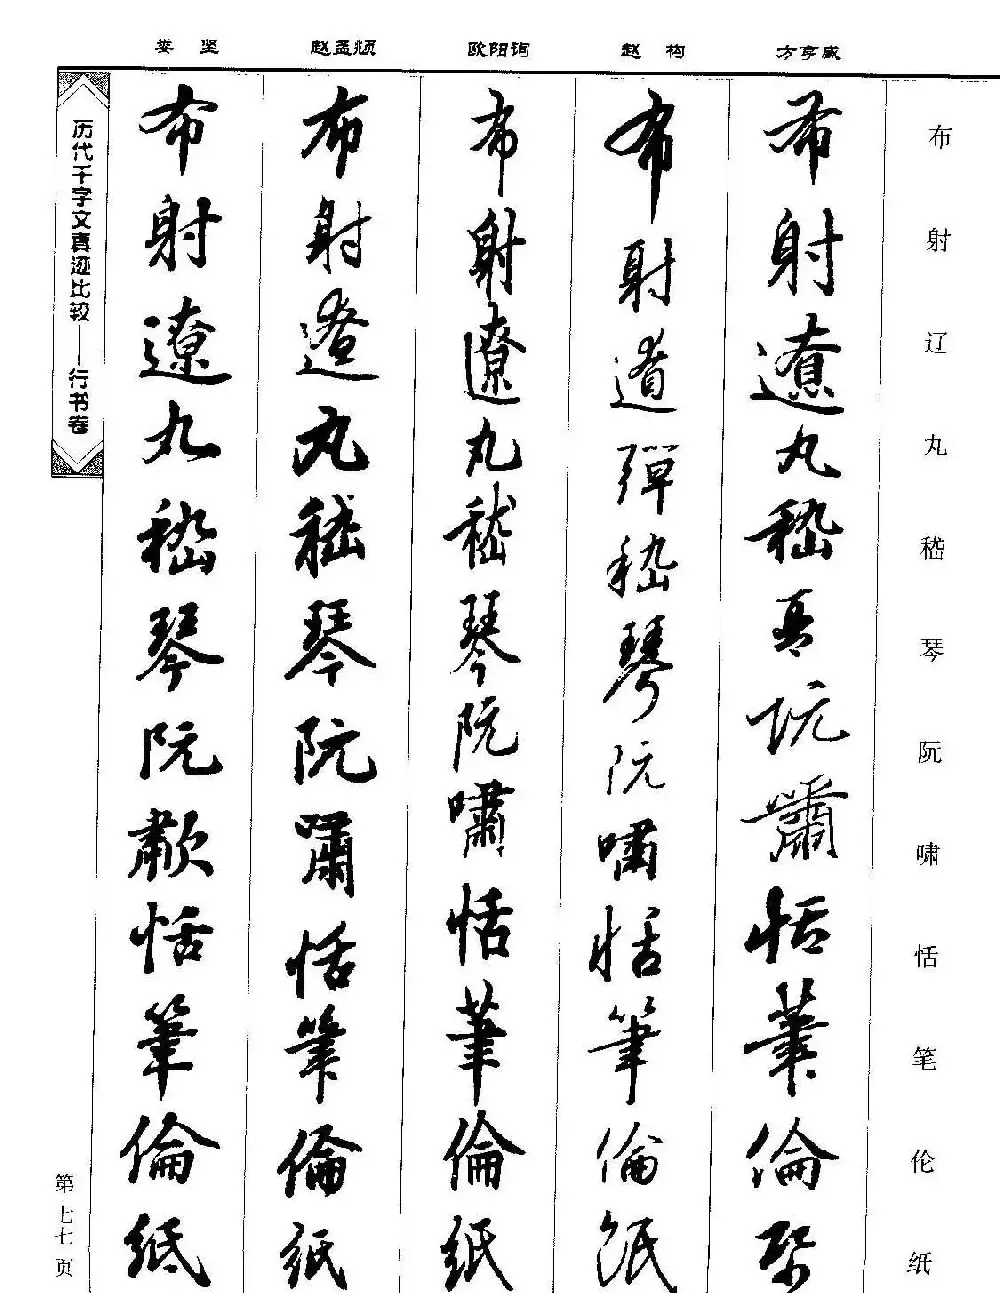 布射辽丸嵇琴阮啸恬笔伦纸
方孝咸
布射遼丸嵇琴阮嘯恬筆倫紙
赵构
布射遼彈嵇琴阮嘯恬筆倫紙
欧阳询
布射遼丸嵇琴阮嘯恬筆倫紙
赵孟頫
布射遼丸嵇琴阮嘯恬筆倫紙
娄坚
布射遼丸嵇琴阮歗恬筆倫紙
历代千字文真迹比较——行书卷
第七七页